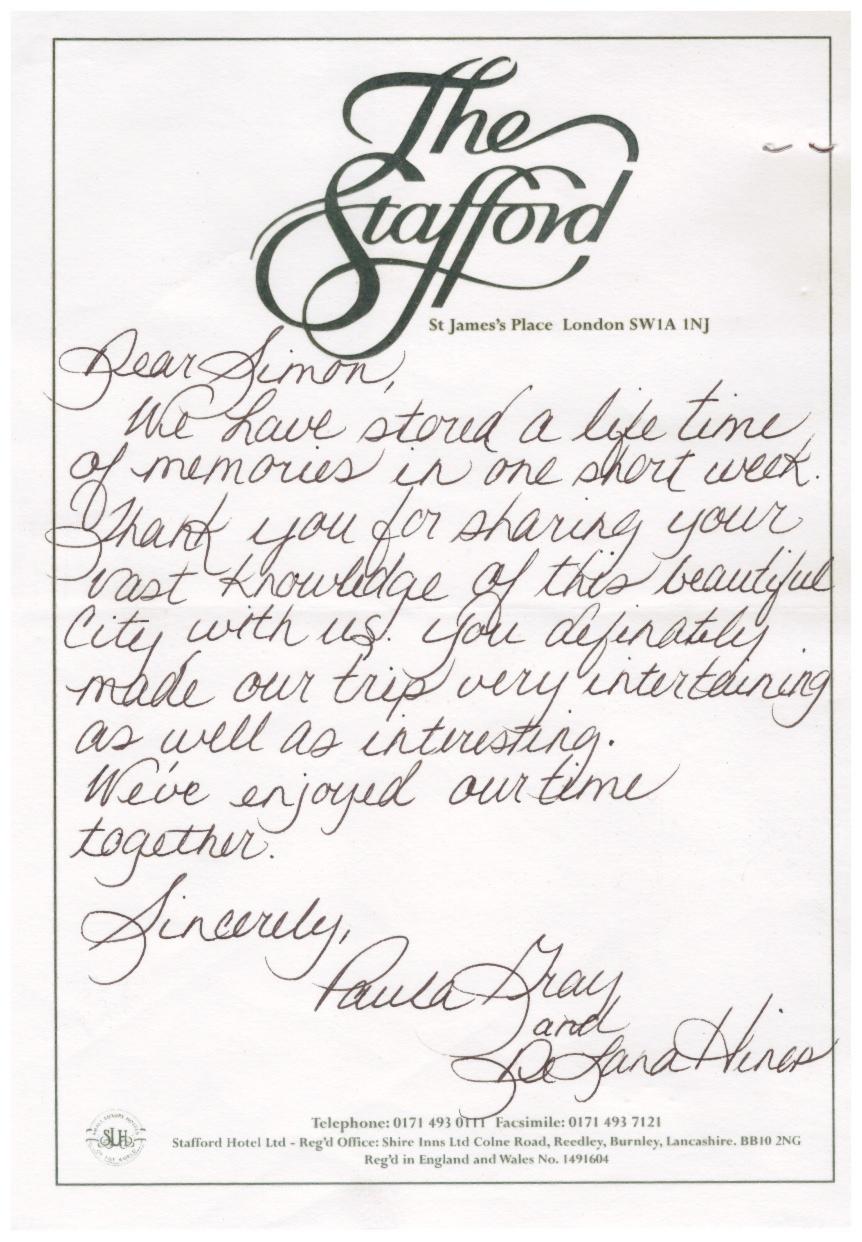 The
Stafford
St James's Place London SW1A 1NJ
Dear Simon,
We have stored a life time
of memories in one short week.
Thank you for sharing your
vast knowledge of this beautiful
City with us. You definately
made our trip very intertaining
as well as interesting.
We've enjoyed our time
together.
Sincerely,
Paula Gray
and
DeLana Hines
Telephone: 0171 493 0111 Facsimile: 0171 493 7121
SLH
SMALL LUXURY HOTELS
OF THE WORLD
Stafford Hotel Ltd - Reg'd Office: Shire Inns Ltd Colne Road, Reedley, Burnley, Lancashire. BB10 2NG
Reg'd in England and Wales No. 1491604